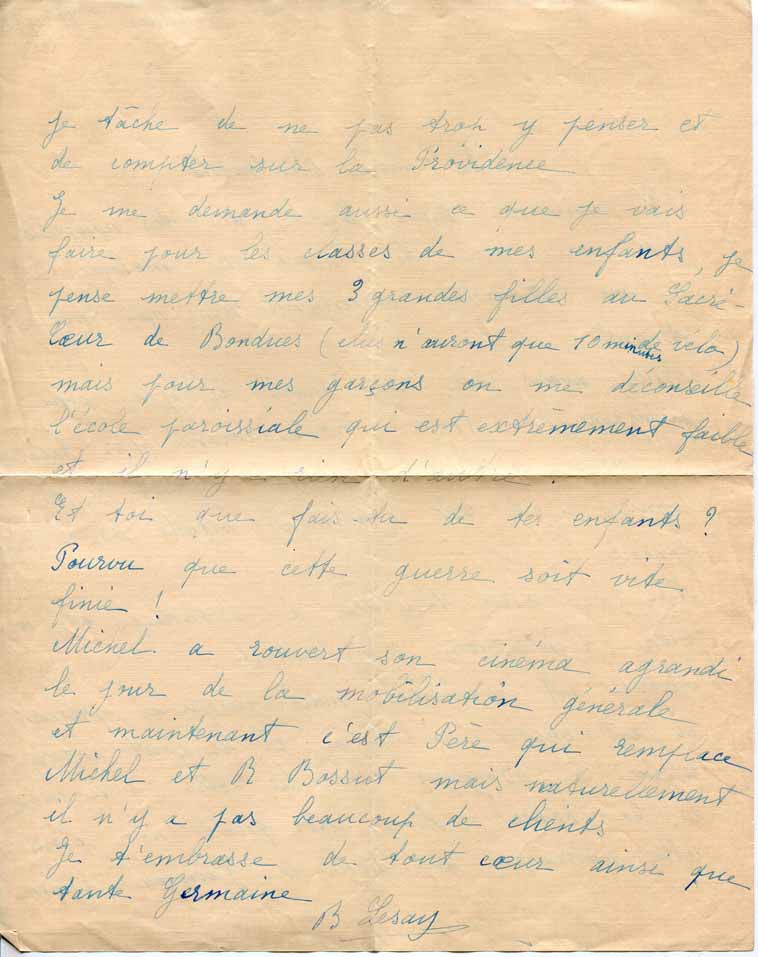 Je tâche de ne pas trop y penser et
de compter sur la Providence
Je me demande aussi ce que je vais
faire pour les classes de mes enfants, je
pense mettre mes 3 grandes filles au Sacré-
Cœur de Bondues (elles n'auront que 10 minutes de vélo)
mais pour mes garçons on me déconseille
l'école paroissiale qui est extrêmement faible
et il n'y a rien d'autre.
Et toi que fais-tu de tes enfants ?
Pourvu que cette guerre soit vite
finie !
Michel a rouvert son cinéma agrandi
le jour de la mobilisation générale
et maintenant c'est Père qui remplace
Michel et R Bossut mais naturellement
il n'y a pas beaucoup de clients
Je t'embrasse de tout cœur ainsi que
tante Germaine
B Lesay